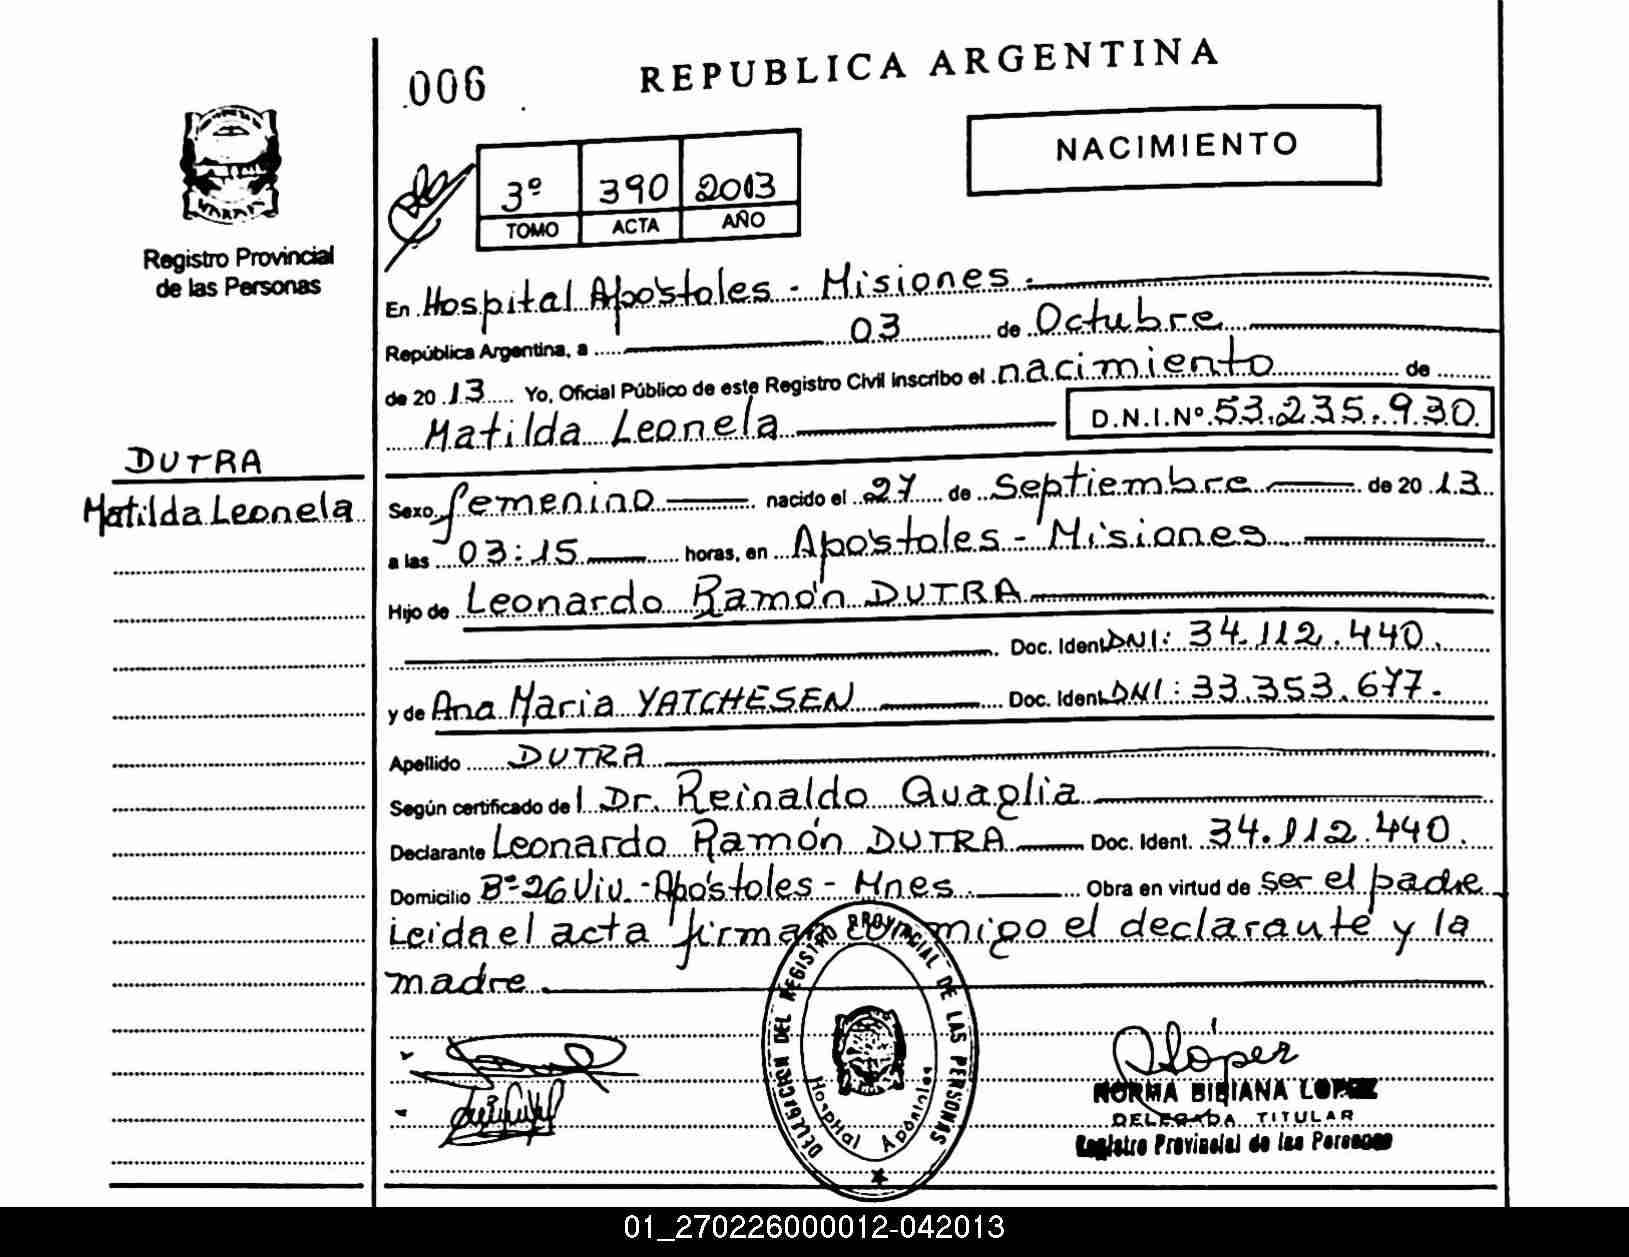 006
REPUBLICA ARGENTINA
NACIMIENTO
3º 390 2013
TOMO ACTA AÑO
Registro Provincial
de las Personas
En Hospital Apóstoles - Misiones.
República Argentina, a 03 de Octubre
de 2013 Yo, Oficial Público de este Registro Civil inscribo el nacimiento de
Matilda Leonela D.N.I.Nº 53.235.930.
DUTRA
Matilda Leonela
Sexo femenino nacido el 27 de Septiembre de 2013
a las 03:15 horas, en Apóstoles - Misiones
Hijo de Leonardo Ramón DUTRA
Doc. Ident. DNI: 34.112.440.
y de Ana Maria YATCHESEN Doc. Ident. DNI: 33.353.677.
Apellido DUTRA
Según certificado del Dr. Reinaldo Quaglia
Declarante Leonardo Ramón DUTRA Doc. Ident. 34.112.440.
Domicilio Bº 26 Viv. - Apóstoles - Mnes. Obra en virtud de ser el padre
Leida el acta firman conmigo el declarante y la
madre.
DELEGACION DEL REGISTRO PROVINCIAL DE LAS PERSONAS
Hospital Apóstoles
López
NORMA BIBIANA LOPEZ
DELEGADA TITULAR
Registro Provincial de las Personas
01_270226000012-042013